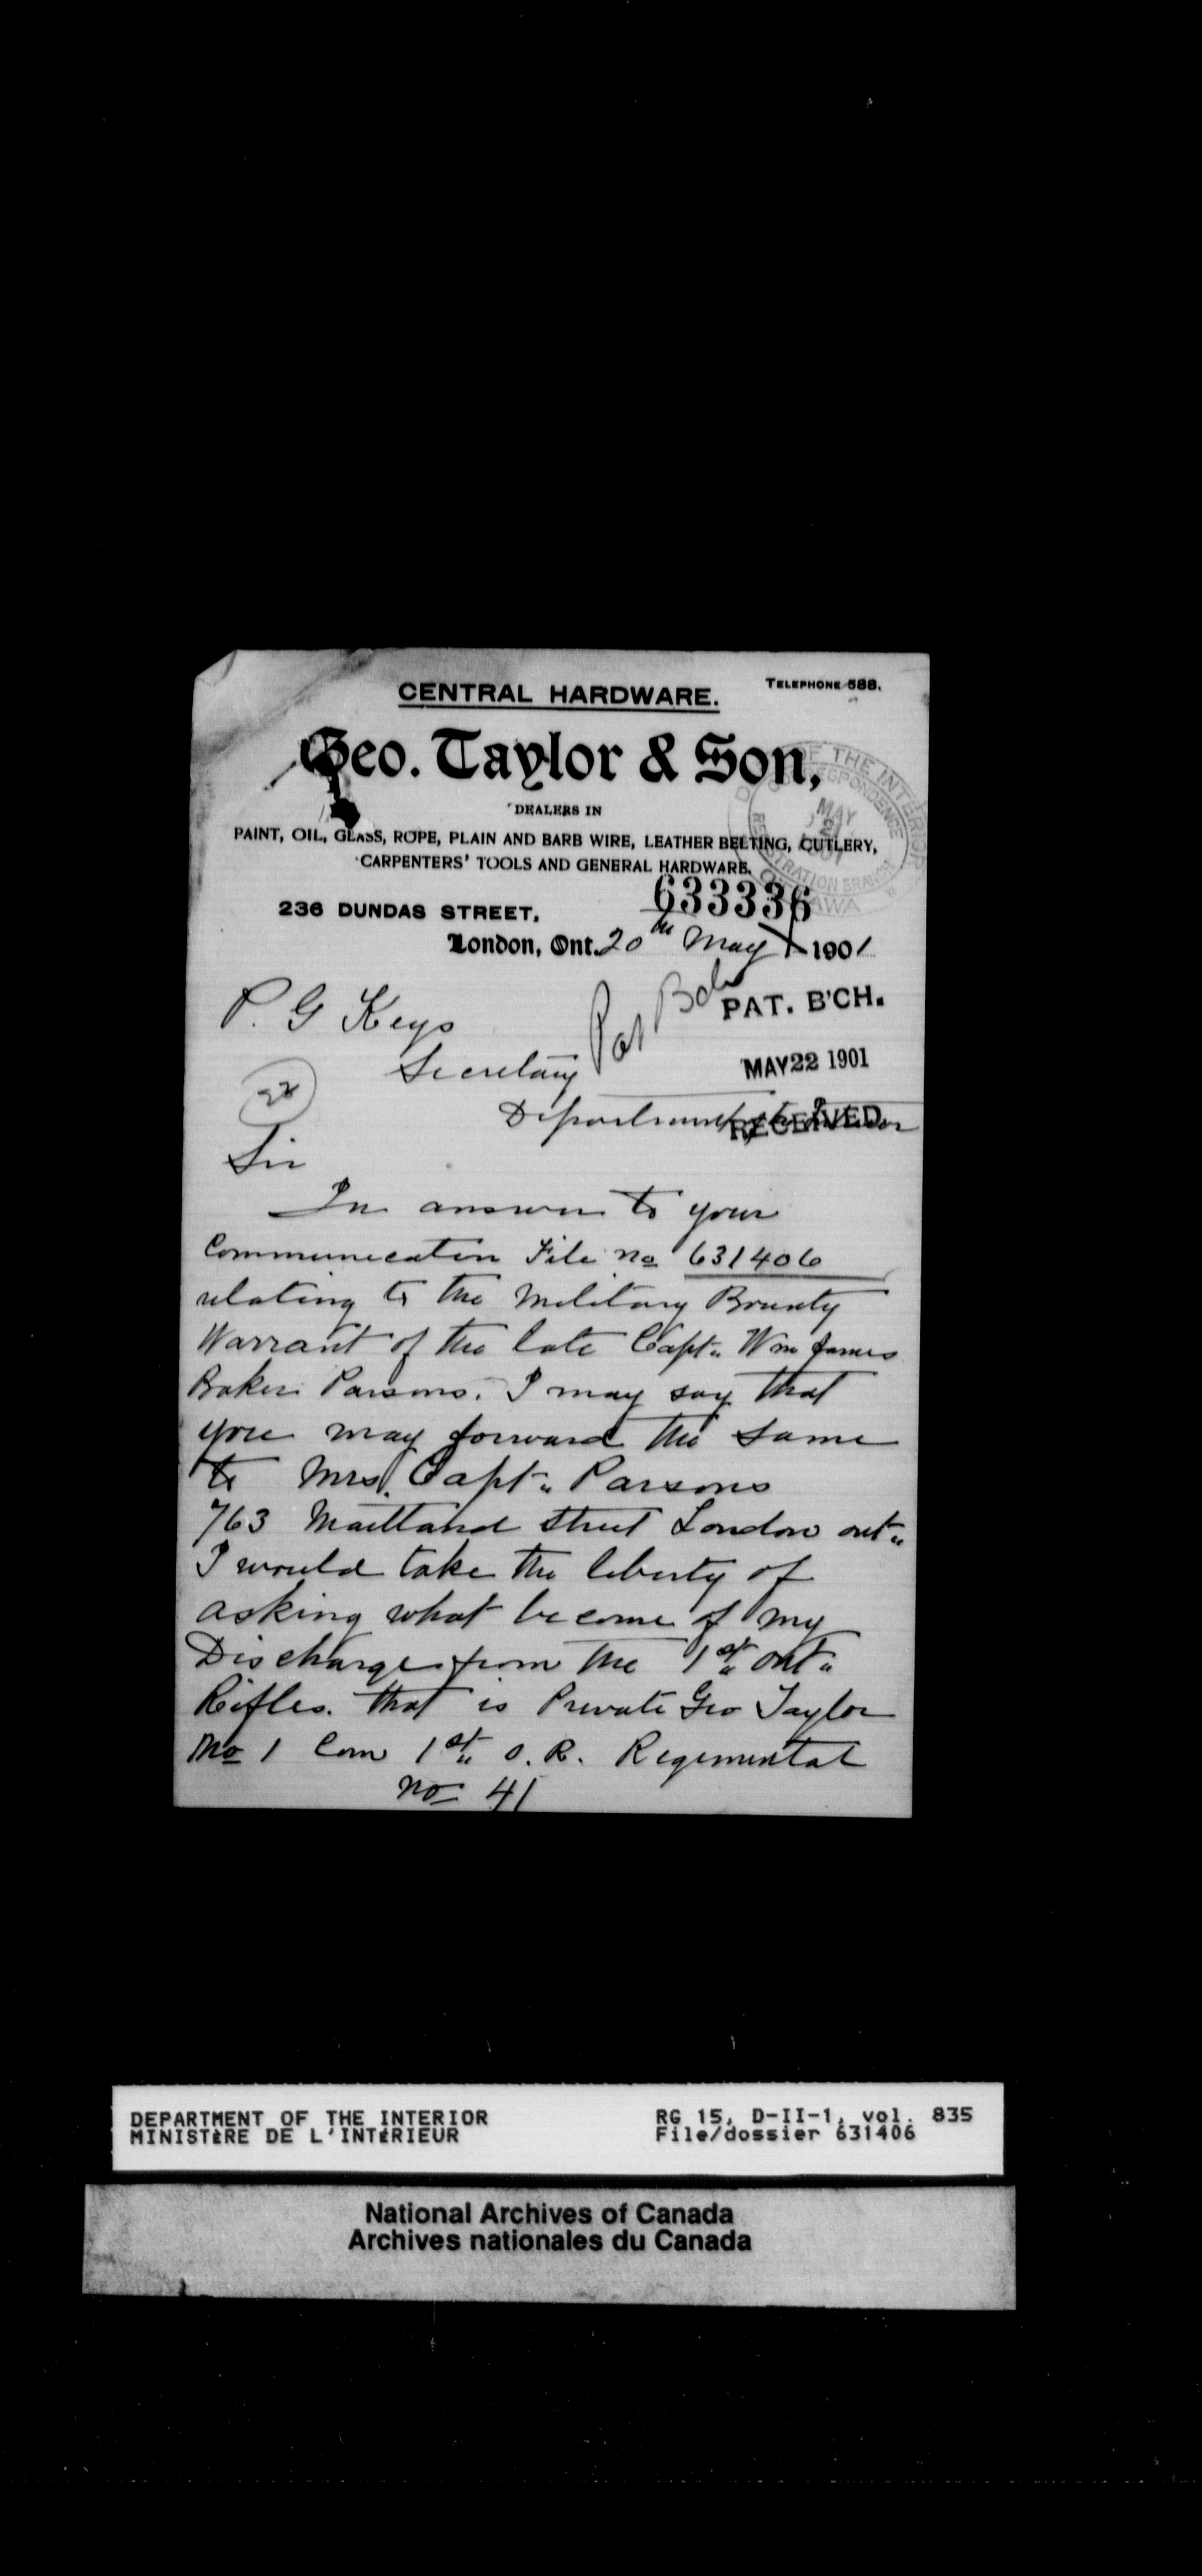 CENTRAL HARDWARE.
TELEPHONE 588.
Geo. Taylor & Son,
DEALERS IN
PAINT, OIL, GLASS, ROPE, PLAIN AND BARB WIRE, LEATHER BELTING, CUTLERY,
CARPENTERS' TOOLS AND GENERAL HARDWARE.
OF THE INTERIOR
CORRESPONDENCE
MAY
REGISTRATION BRANCH
OTTAWA
633336
236 DUNDAS STREET,
London, Ont. 20th May 1901
Pat Bch
PAT. B'CH.
MAY 22 1901
RECEIVED
P. G Keys
Secretary
Department of the Interior
22
Sir
In answer to your
Communication File no 631406
relating to the Military Bounty
Warrant of the late Capt" Wm James
Baker Parsons. I may say that
you may forward the same
to Mrs. Capt" Parsons
763 Maitland Street London ont"
I would take the liberty of
asking what become of my
Discharge from the 1st" Ont"
Rifles. that is Private Geo Taylor
No 1 Com 1st" O. R. Regimental
no 41
DEPARTMENT OF THE INTERIOR
MINISTÈRE DE L'INTÉRIEUR
RG 15, D-II-1, vol. 835
File/dossier 631406
National Archives of Canada
Archives nationales du Canada